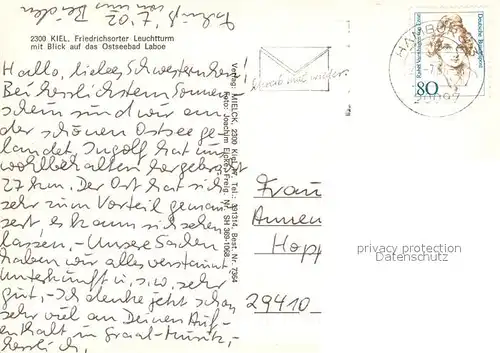 2300 KIEL. Friedrichsorter Leuchtturm
mit Blick auf das Ostseebad Laboe
Hallo, liebes Schwesterchen!
Bei herrlichstem Sonnen-
schein sind wir an
der schönen Ostsee ge-
landet. Ingolf hat uns
wohlbehalten hergebracht
27 km. Der Ort hat sich
sehr zum Vorteil gemau-
sert, es kann sich sehen
lassen. - Unsere Sachen
haben wir alles verstaut
Unterkunft u.s.w. sehr
gut. - Ich denke jetzt schon
sehr viel an Deinen Auf-
enthalt in Graal-Müritz,-
herzlich,
7.'02
von uns Beiden
Verlag: MIELCK, 2300 Kiel Tel.: 391314, Best. Nr. 7364
Foto: Joachim Freig. Nr. SH
Schreib mal wieder
Deutsche Bundespost
80
Frau
Annen
Hopp
29410
privacy protection
Datenschutz